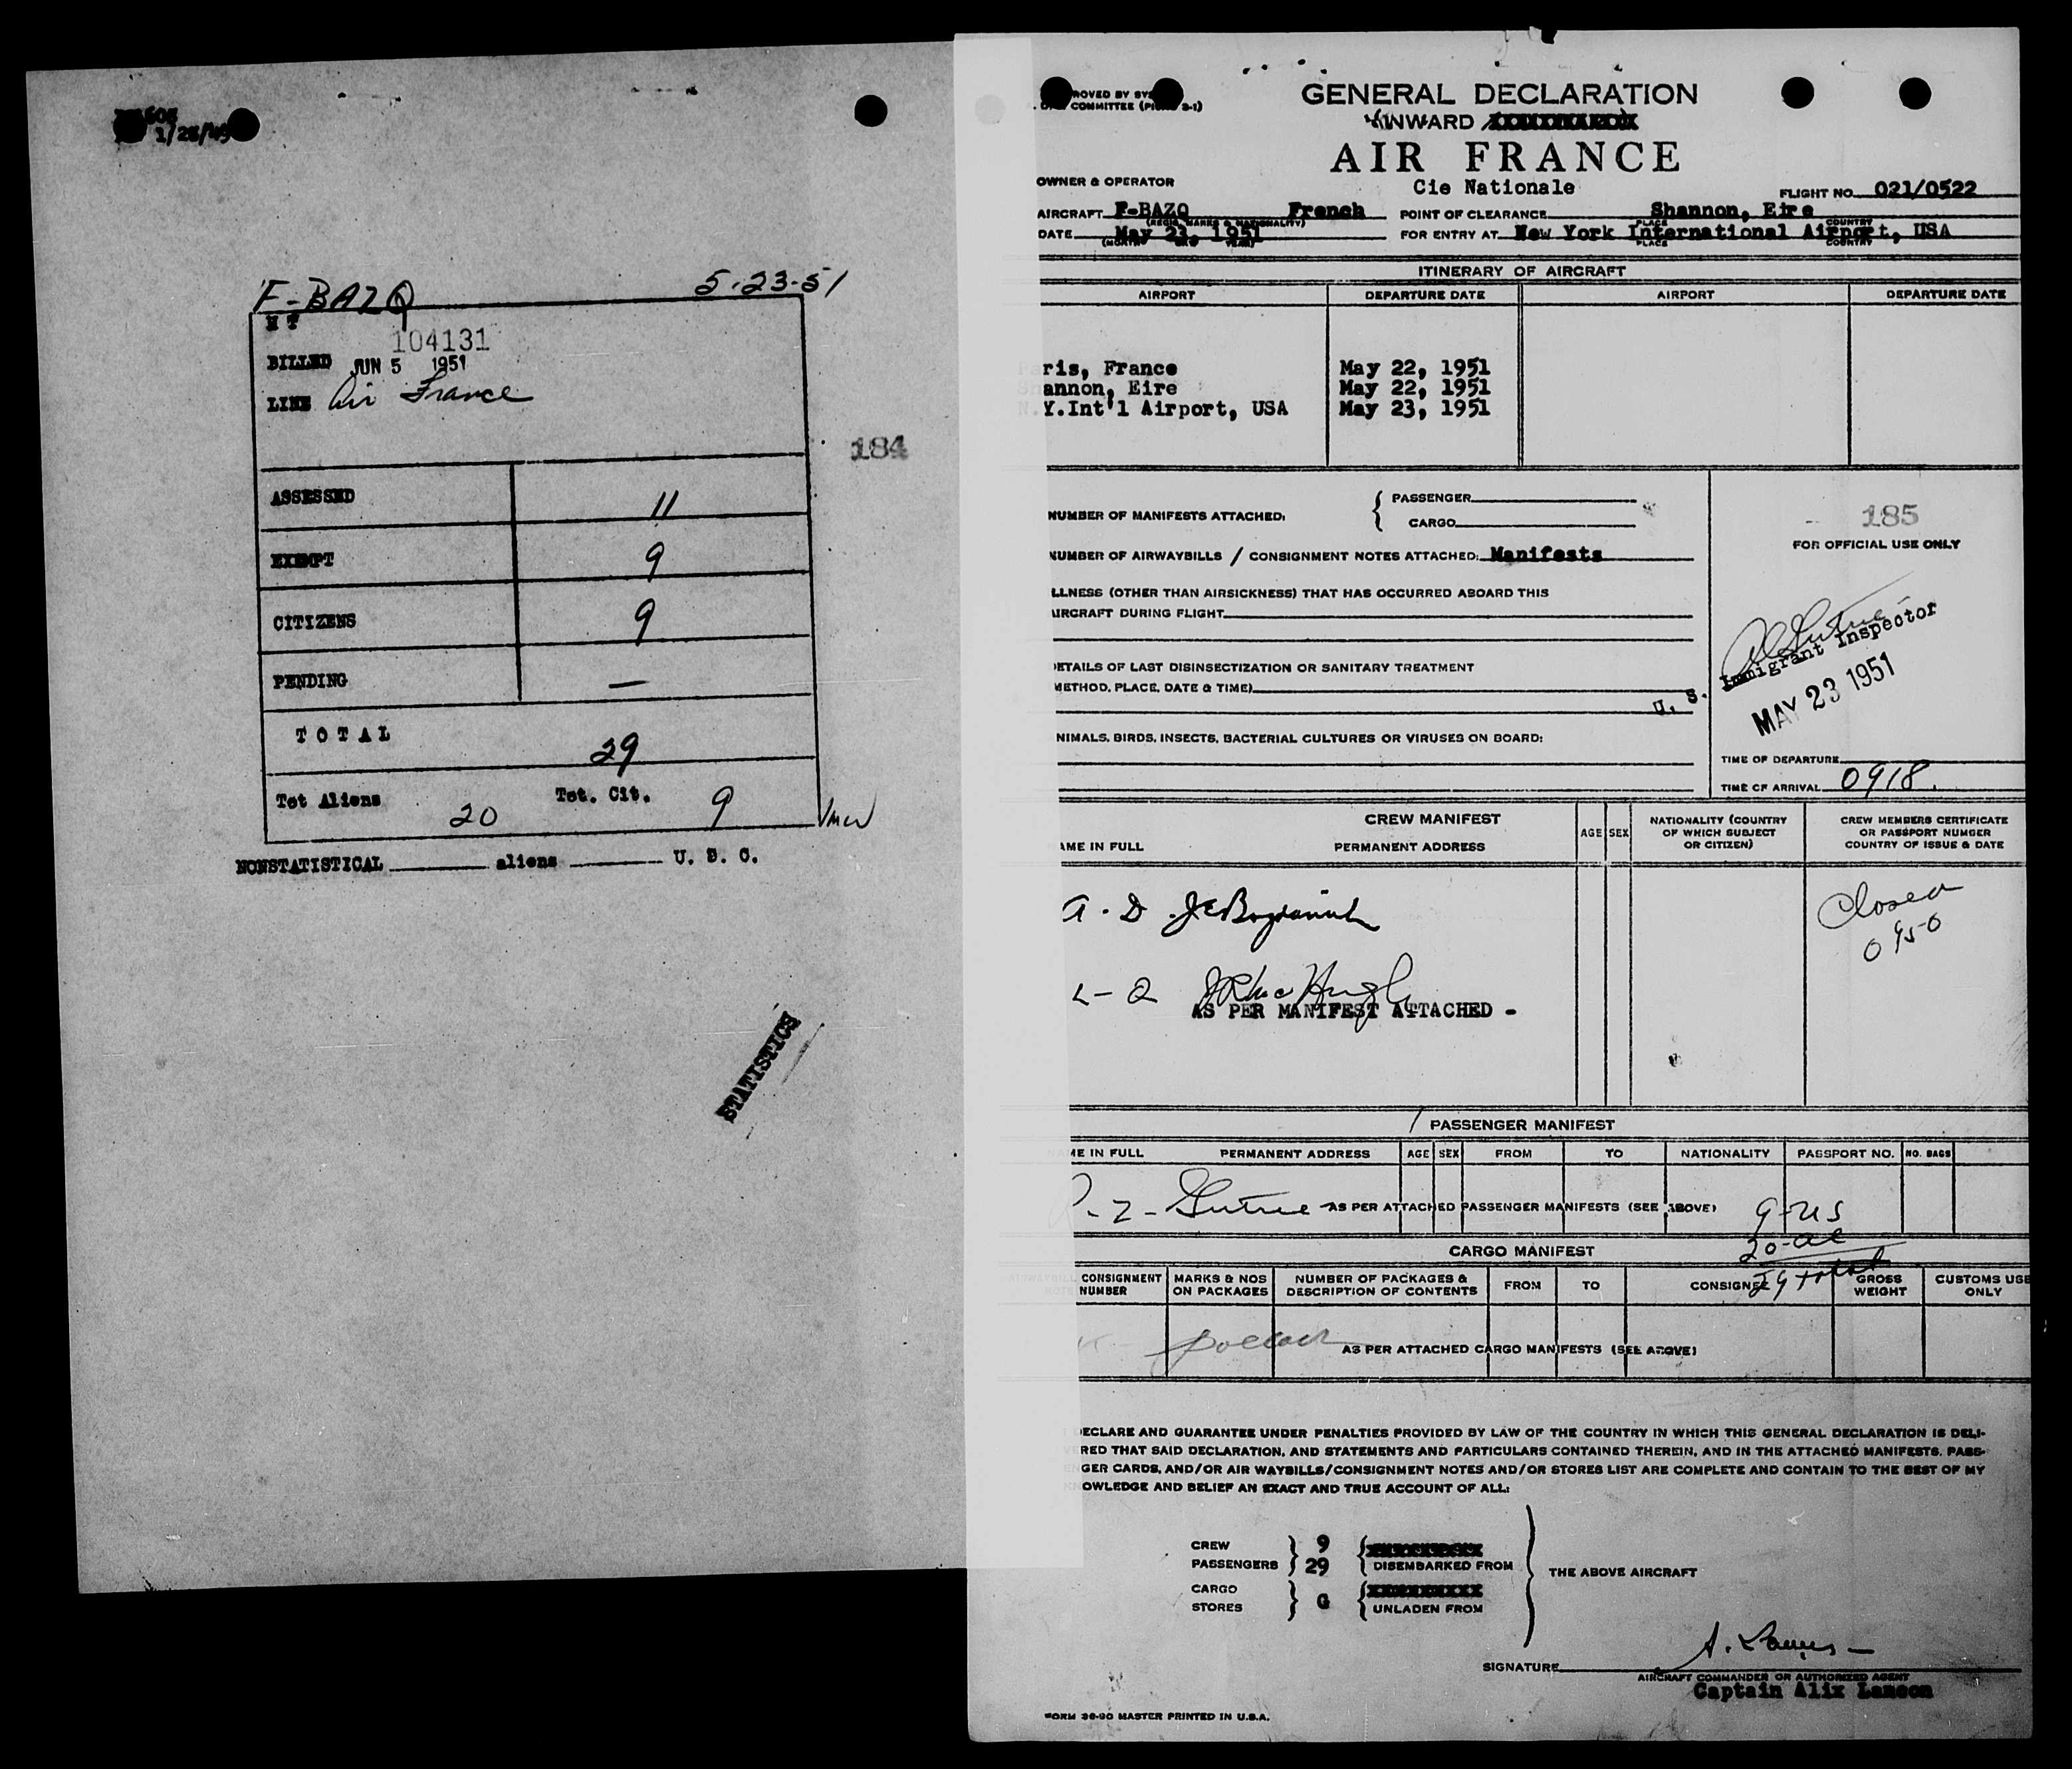 1/25/49
F-BAZQ 5-23-51
M T
104131
BILLED JUN 5 1951
LINE Air France
184
ASSESSED 11
EXEMPT 9
CITIZENS 9
PENDING —
TOTAL 29
Tot Aliens 20 Tot. Cit. 9
NONSTATISTICAL ______ aliens ______ U. S. C.
STATISTICS
GENERAL DECLARATION
INWARD
AIR FRANCE
OWNER & OPERATOR Cie Nationale FLIGHT NO. 021/0522
AIRCRAFT F-BAZQ French POINT OF CLEARANCE Shannon, Eire
(REGIS. MARKS & NATIONALITY) PLACE COUNTRY
DATE May 23, 1951 FOR ENTRY AT New York International Airport, USA
PLACE COUNTRY
ITINERARY OF AIRCRAFT
AIRPORT DEPARTURE DATE AIRPORT DEPARTURE DATE
ris, France May 22, 1951
annon, Eire May 22, 1951
.Y.Int'l Airport, USA May 23, 1951
NUMBER OF MANIFESTS ATTACHED: { PASSENGER
CARGO
185
FOR OFFICIAL USE ONLY
NUMBER OF AIRWAYBILLS / CONSIGNMENT NOTES ATTACHED: Manifests
LLNESS (OTHER THAN AIRSICKNESS) THAT HAS OCCURRED ABOARD THIS
IRCRAFT DURING FLIGHT
ETAILS OF LAST DISINSECTIZATION OR SANITARY TREATMENT
METHOD, PLACE, DATE & TIME)
U. S. Immigrant Inspector
MAY 23 1951
NIMALS, BIRDS, INSECTS, BACTERIAL CULTURES OR VIRUSES ON BOARD:
TIME OF DEPARTURE
TIME OF ARRIVAL 0918.
CREW MANIFEST
AME IN FULL PERMANENT ADDRESS AGE SEX NATIONALITY (COUNTRY OF WHICH SUBJECT OR CITIZEN) CREW MEMBERS CERTIFICATE OR PASSPORT NUMBER COUNTRY OF ISSUE & DATE
Closed
0950
AS PER MANIFEST ATTACHED -
PASSENGER MANIFEST
ME IN FULL PERMANENT ADDRESS AGE SEX FROM TO NATIONALITY PASSPORT NO. NO. BAGS
AS PER ATTACHED PASSENGER MANIFESTS (SEE ABOVE)
9-US
20-al
29 total
CARGO MANIFEST
CONSIGNMENT NUMBER MARKS & NOS ON PACKAGES NUMBER OF PACKAGES & DESCRIPTION OF CONTENTS FROM TO CONSIGNEE GROSS WEIGHT CUSTOMS USE ONLY
AS PER ATTACHED CARGO MANIFESTS (SEE ABOVE)
DECLARE AND GUARANTEE UNDER PENALTIES PROVIDED BY LAW OF THE COUNTRY IN WHICH THIS GENERAL DECLARATION IS DELI-
RED THAT SAID DECLARATION, AND STATEMENTS AND PARTICULARS CONTAINED THEREIN, AND IN THE ATTACHED MANIFESTS, PASS-
GER CARDS, AND/OR AIR WAYBILLS/CONSIGNMENT NOTES AND/OR STORES LIST ARE COMPLETE AND CONTAIN TO THE BEST OF MY
OWLEDGE AND BELIEF AN EXACT AND TRUE ACCOUNT OF ALL:
CREW 9
PASSENGERS 29 DISEMBARKED FROM
THE ABOVE AIRCRAFT
CARGO
STORES G UNLADEN FROM
SIGNATURE
AIRCRAFT COMMANDER OR AUTHORIZED AGENT
Captain Alix Lamson
FORM 36-90 MASTER PRINTED IN U.S.A.